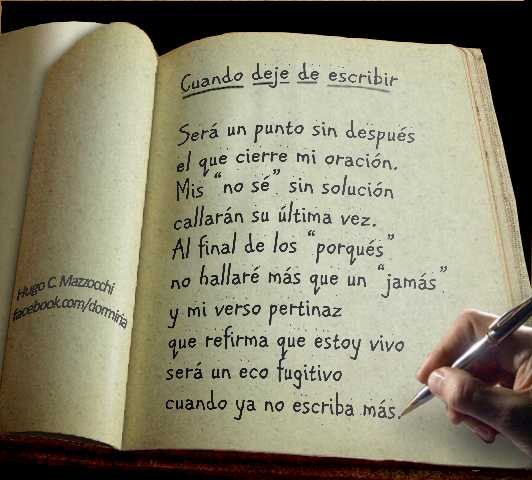 Hugo C. Mazzocchi
facebook.com/dormiria
Cuando deje de escribir
Será un punto sin después
el que cierre mi oración.
Mis “no sé” sin solución
callarán su última vez.
Al final de los “porqués”
no hallaré más que un “jamás”
y mi verso pertinaz
que refirma que estoy vivo
será un eco fugitivo
cuando ya no escriba más.